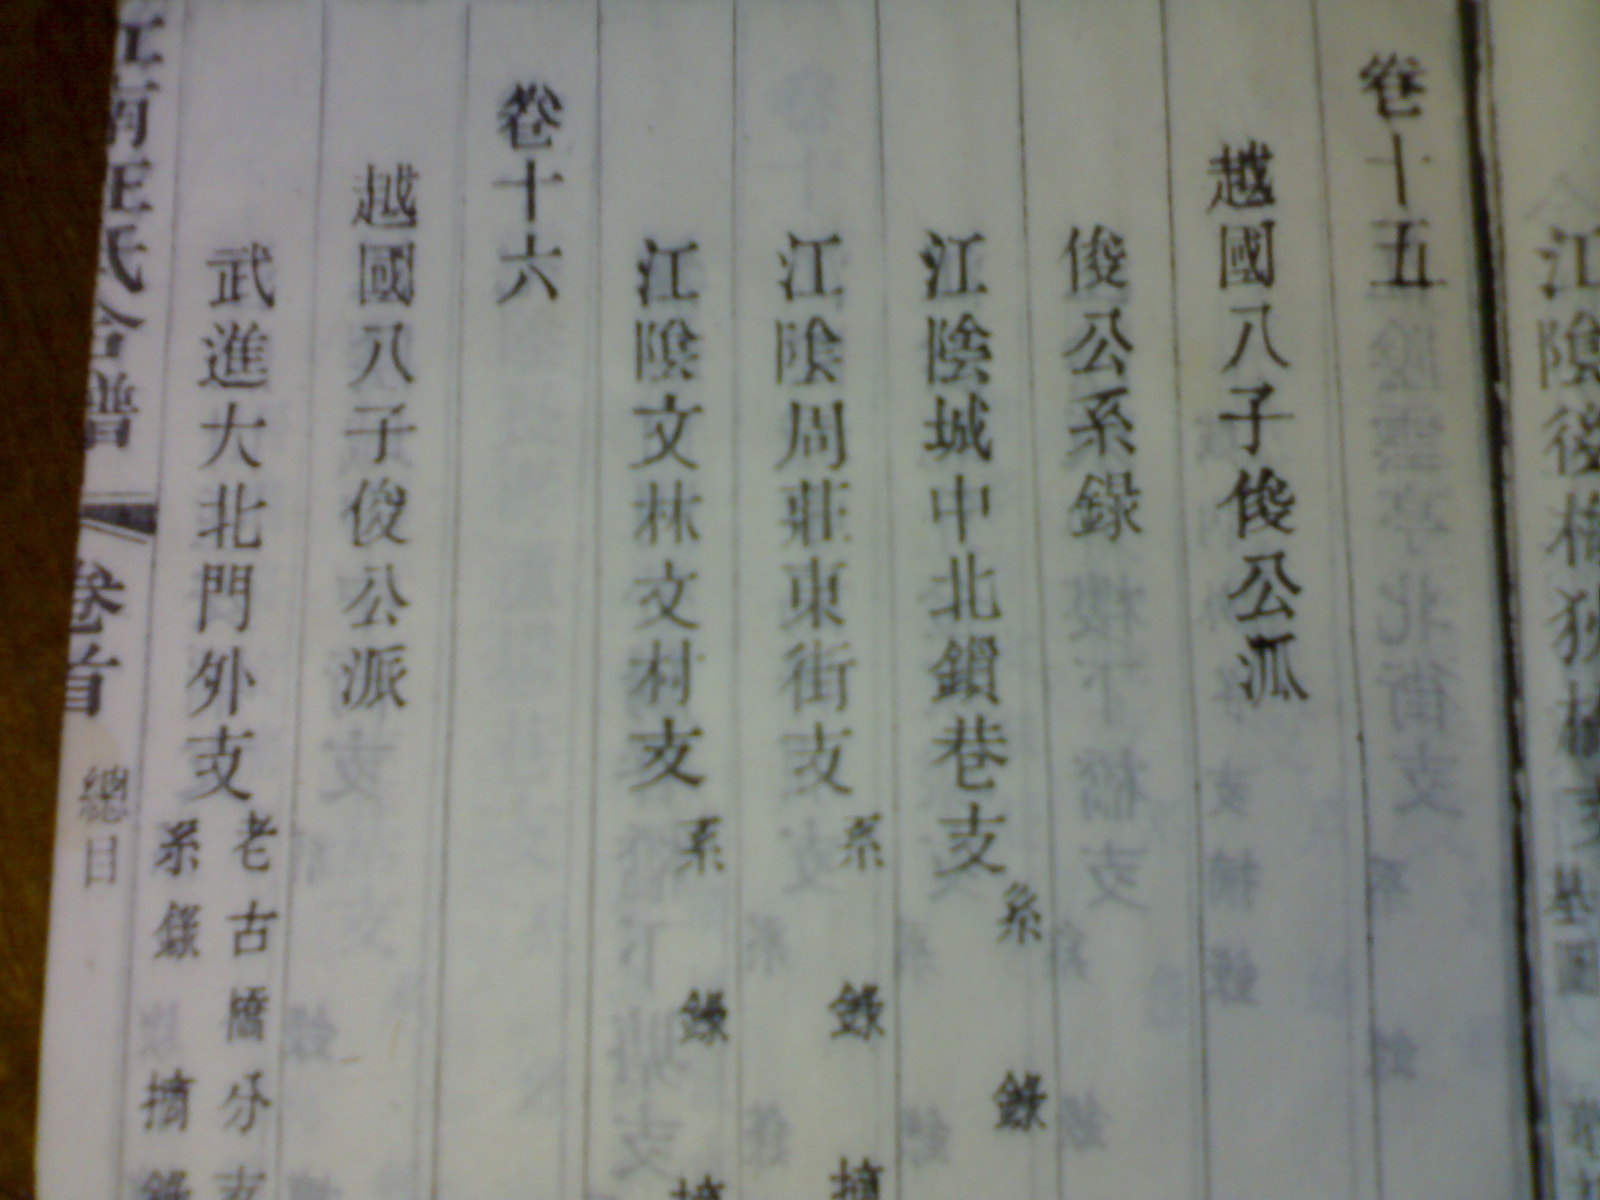 江陰後梅狄橋支
卷十五
越國八子俊公派
俊公系錄
江陰城中北鎖巷支 系錄
江陰周莊東街支 系錄摘
江陰文林文村支 系錄摘
卷十六
越國八子俊公派
武進大北門外支 老古橋分支
系錄摘錄
江南汪氏合譜 卷首 總目